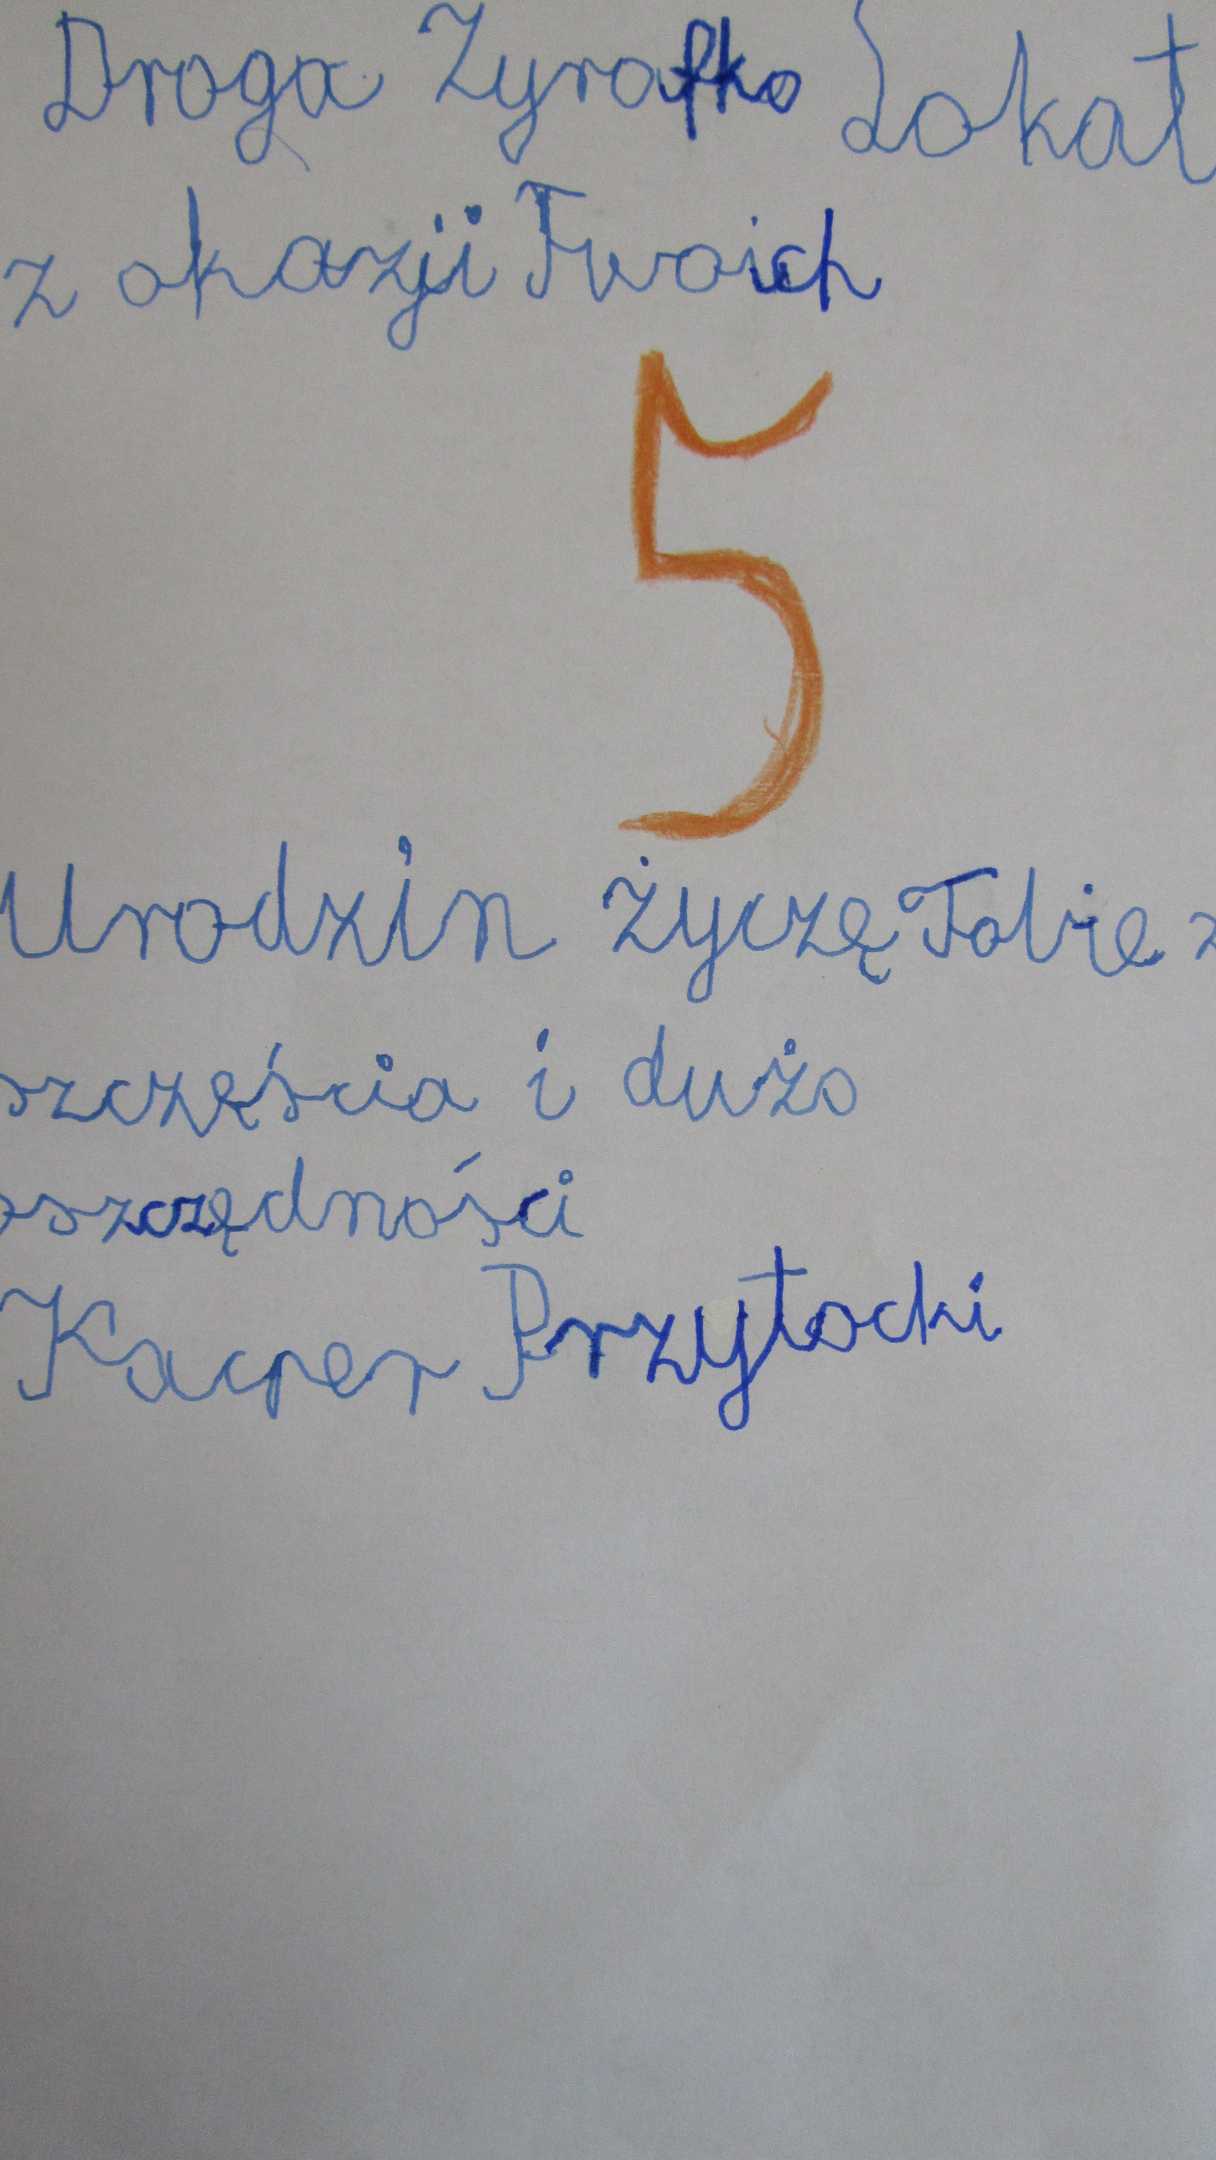 Droga Żyrafko Lokat
z okazji Twoich
5
Urodzin życzę Tobie z
szczęścia i dużo
oszczędności
Kacper Przytocki